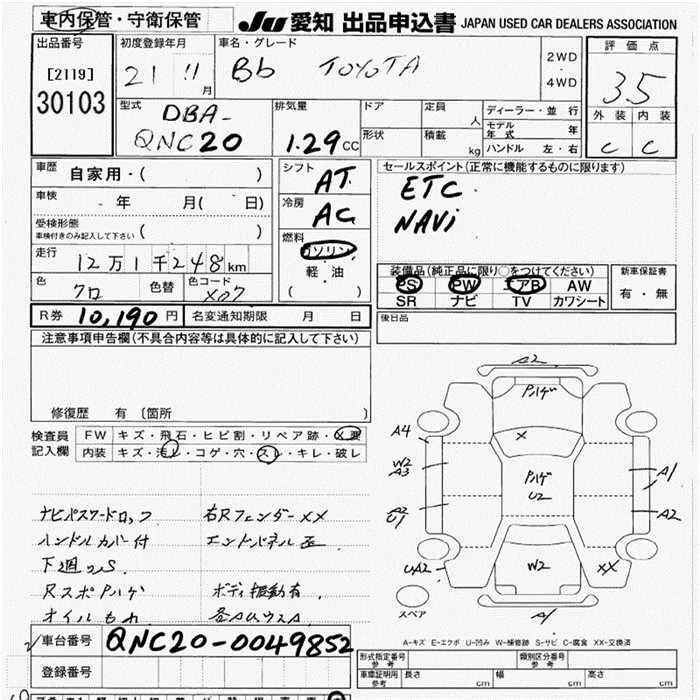 車内保管・守衛保管
JU 愛知 出品申込書 JAPAN USED CAR DEALERS ASSOCIATION
出品番号
[2119]
30103
初度登録年月
21 11月
車名・グレード
Bb TOYOTA
2WD
・
4WD
評価点
3.5
外装 内装
C C
型式
DBA-
QNC20
排気量
1.29CC
ドア
定員 人
形状
積載 kg
ディーラー・並行
モデル年式 年
ハンドル 左・右
車歴
自家用・( )
車検
年 月( 日)
受検形態
車検付きのみ記入して下さい ( )
走行
12万1千248km
色
クロ
色替
色コード
X07
シフト
AT
冷房
AC
燃料
ガソリン
・
軽・油
( )
セールスポイント(正常に機能するものに限ります)
ETC
NAVi
装備品(純正品に限り○をつけてください)
PS PW エアB AW
SR ナビ TV カワシート
新車保証書
有・無
R券 10,190円 名変通知期限 月 日
後日品
注意事項申告欄(不具合内容等は具体的に記入して下さい)
修復歴 有 〔箇所 〕
検査員
記入欄
FW キズ・飛石・ヒビ割・リペア跡・X要
内装 キズ・汚レ・コゲ・穴・スレ・キレ・破レ
ナビパスワードロック 右Rフェンダー XX
ハンドルカバー付 エンドパネル歪
下廻りS
RスポPハゲ ボディ振動有
オイルもれ 各AUウスA
A2
Pハゲ
X
A4
W2
A3
Pハゲ
U2
A1
A2
U1
A2
UA2
W2
XX
スペア
A1
A-キズ E-エクボ U-凹み W-補修跡 S-サビ C-腐食 XX-交換済
車台番号 QNC20-0049852
登録番号
形式指定番号
参考
類別区分番号
参考
車庫証明用
参考
長さ cm 幅 cm 高さ cm